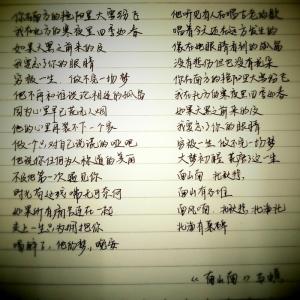 你在南方的艳阳里大雪纷飞
我在北方的寒夜里四季如春
如果天黑之前来的及
我要忘了你的眼睛
穷极一生 做不完一场梦
他不再和谁谈论相逢的孤岛
因为心里早已荒无人烟
他的心里再装不下一个家
做一个只对自己说谎的哑巴
他说你任何为人称道的美丽
不及他第一次遇见你
时光苟延残喘无可奈何
如果所有土地连在一起
走上一生只为拥抱你
喝醉了他的梦，晚安
他听见有人在唱古老的歌
唱着今天还在远方发生的
像在她眼睛里看到的孤岛
没有悲伤但也没有花朵
你在南方的艳阳里大雪纷飞
我在北方的寒夜里四季如春
如果天黑之前来的及
我要忘了你的眼睛
穷极一生 做不完一场梦
大梦初醒 荒唐了这一生
南山南 北秋悲
南山有谷堆
南风喃 北秋悲 北海北
北海有墓碑
《南山南》马頔